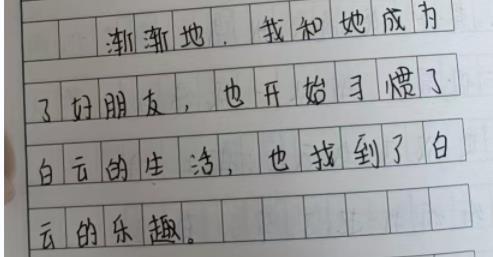 渐渐地，我和她成为
了好朋友，也开始习惯了
白云的生活，也找到了白
云的乐趣。